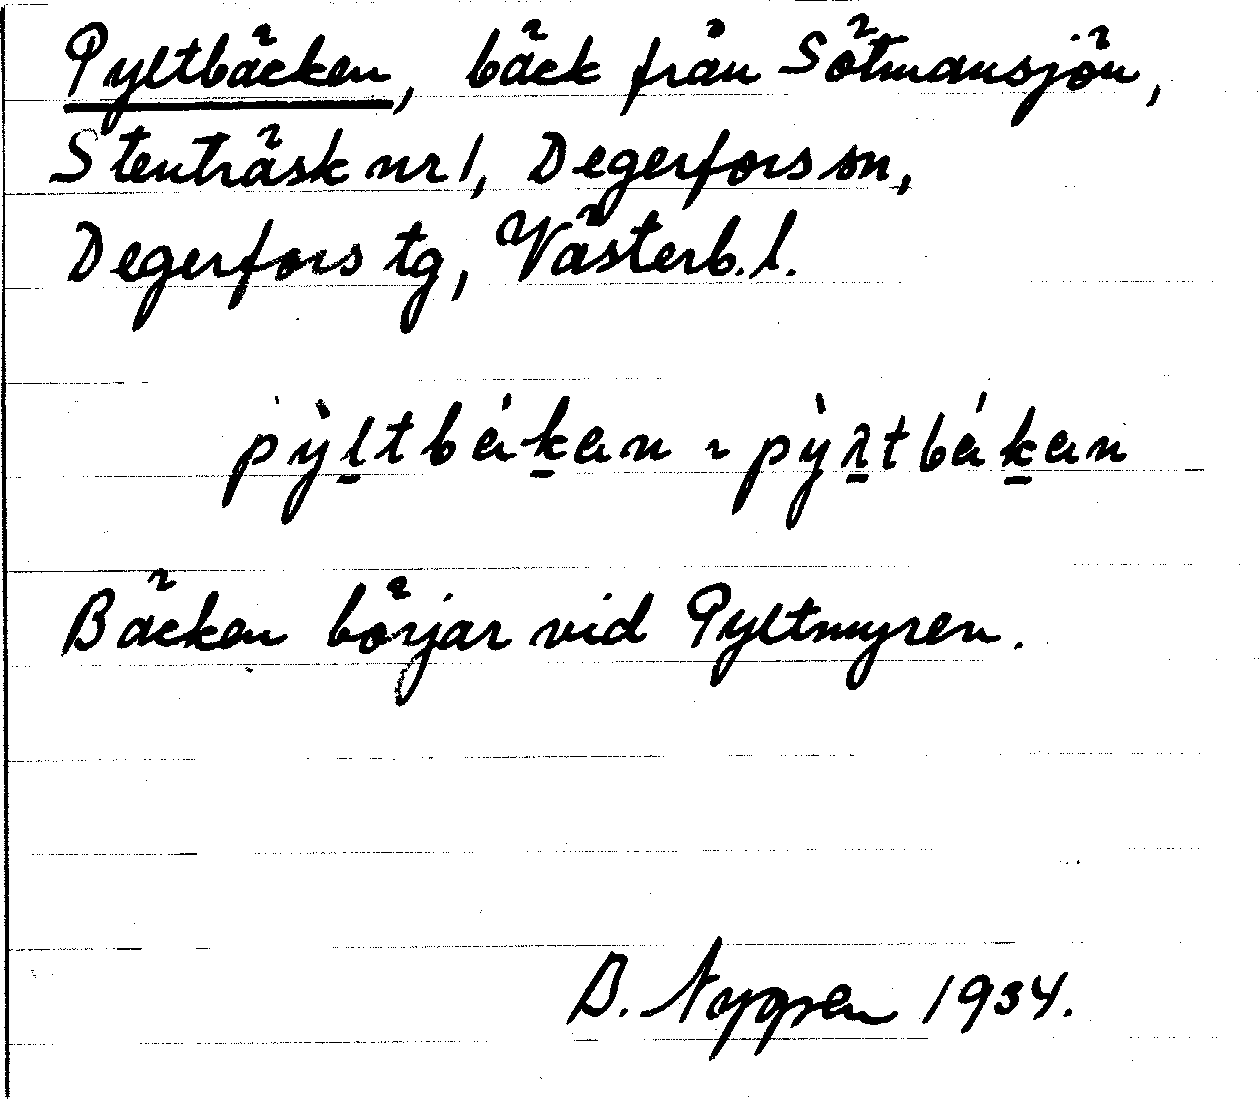 Pyltbäcken, bäck från Sötmansjön,
Stenträsk nr 1, Degerfors sn,
Degerfors tg, Västerb. l.
pỳl̲tbák̲an ~ pỳλ̲tbák̲an
Bäcken börjar vid Pyltmyren.
B. Nygren 1934.